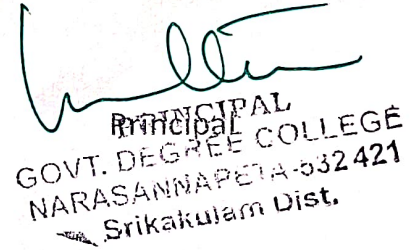 PRINCIPAL
Principal
GOVT. DEGREE COLLEGE
NARASANNAPETA-532 421
Srikakulam Dist.